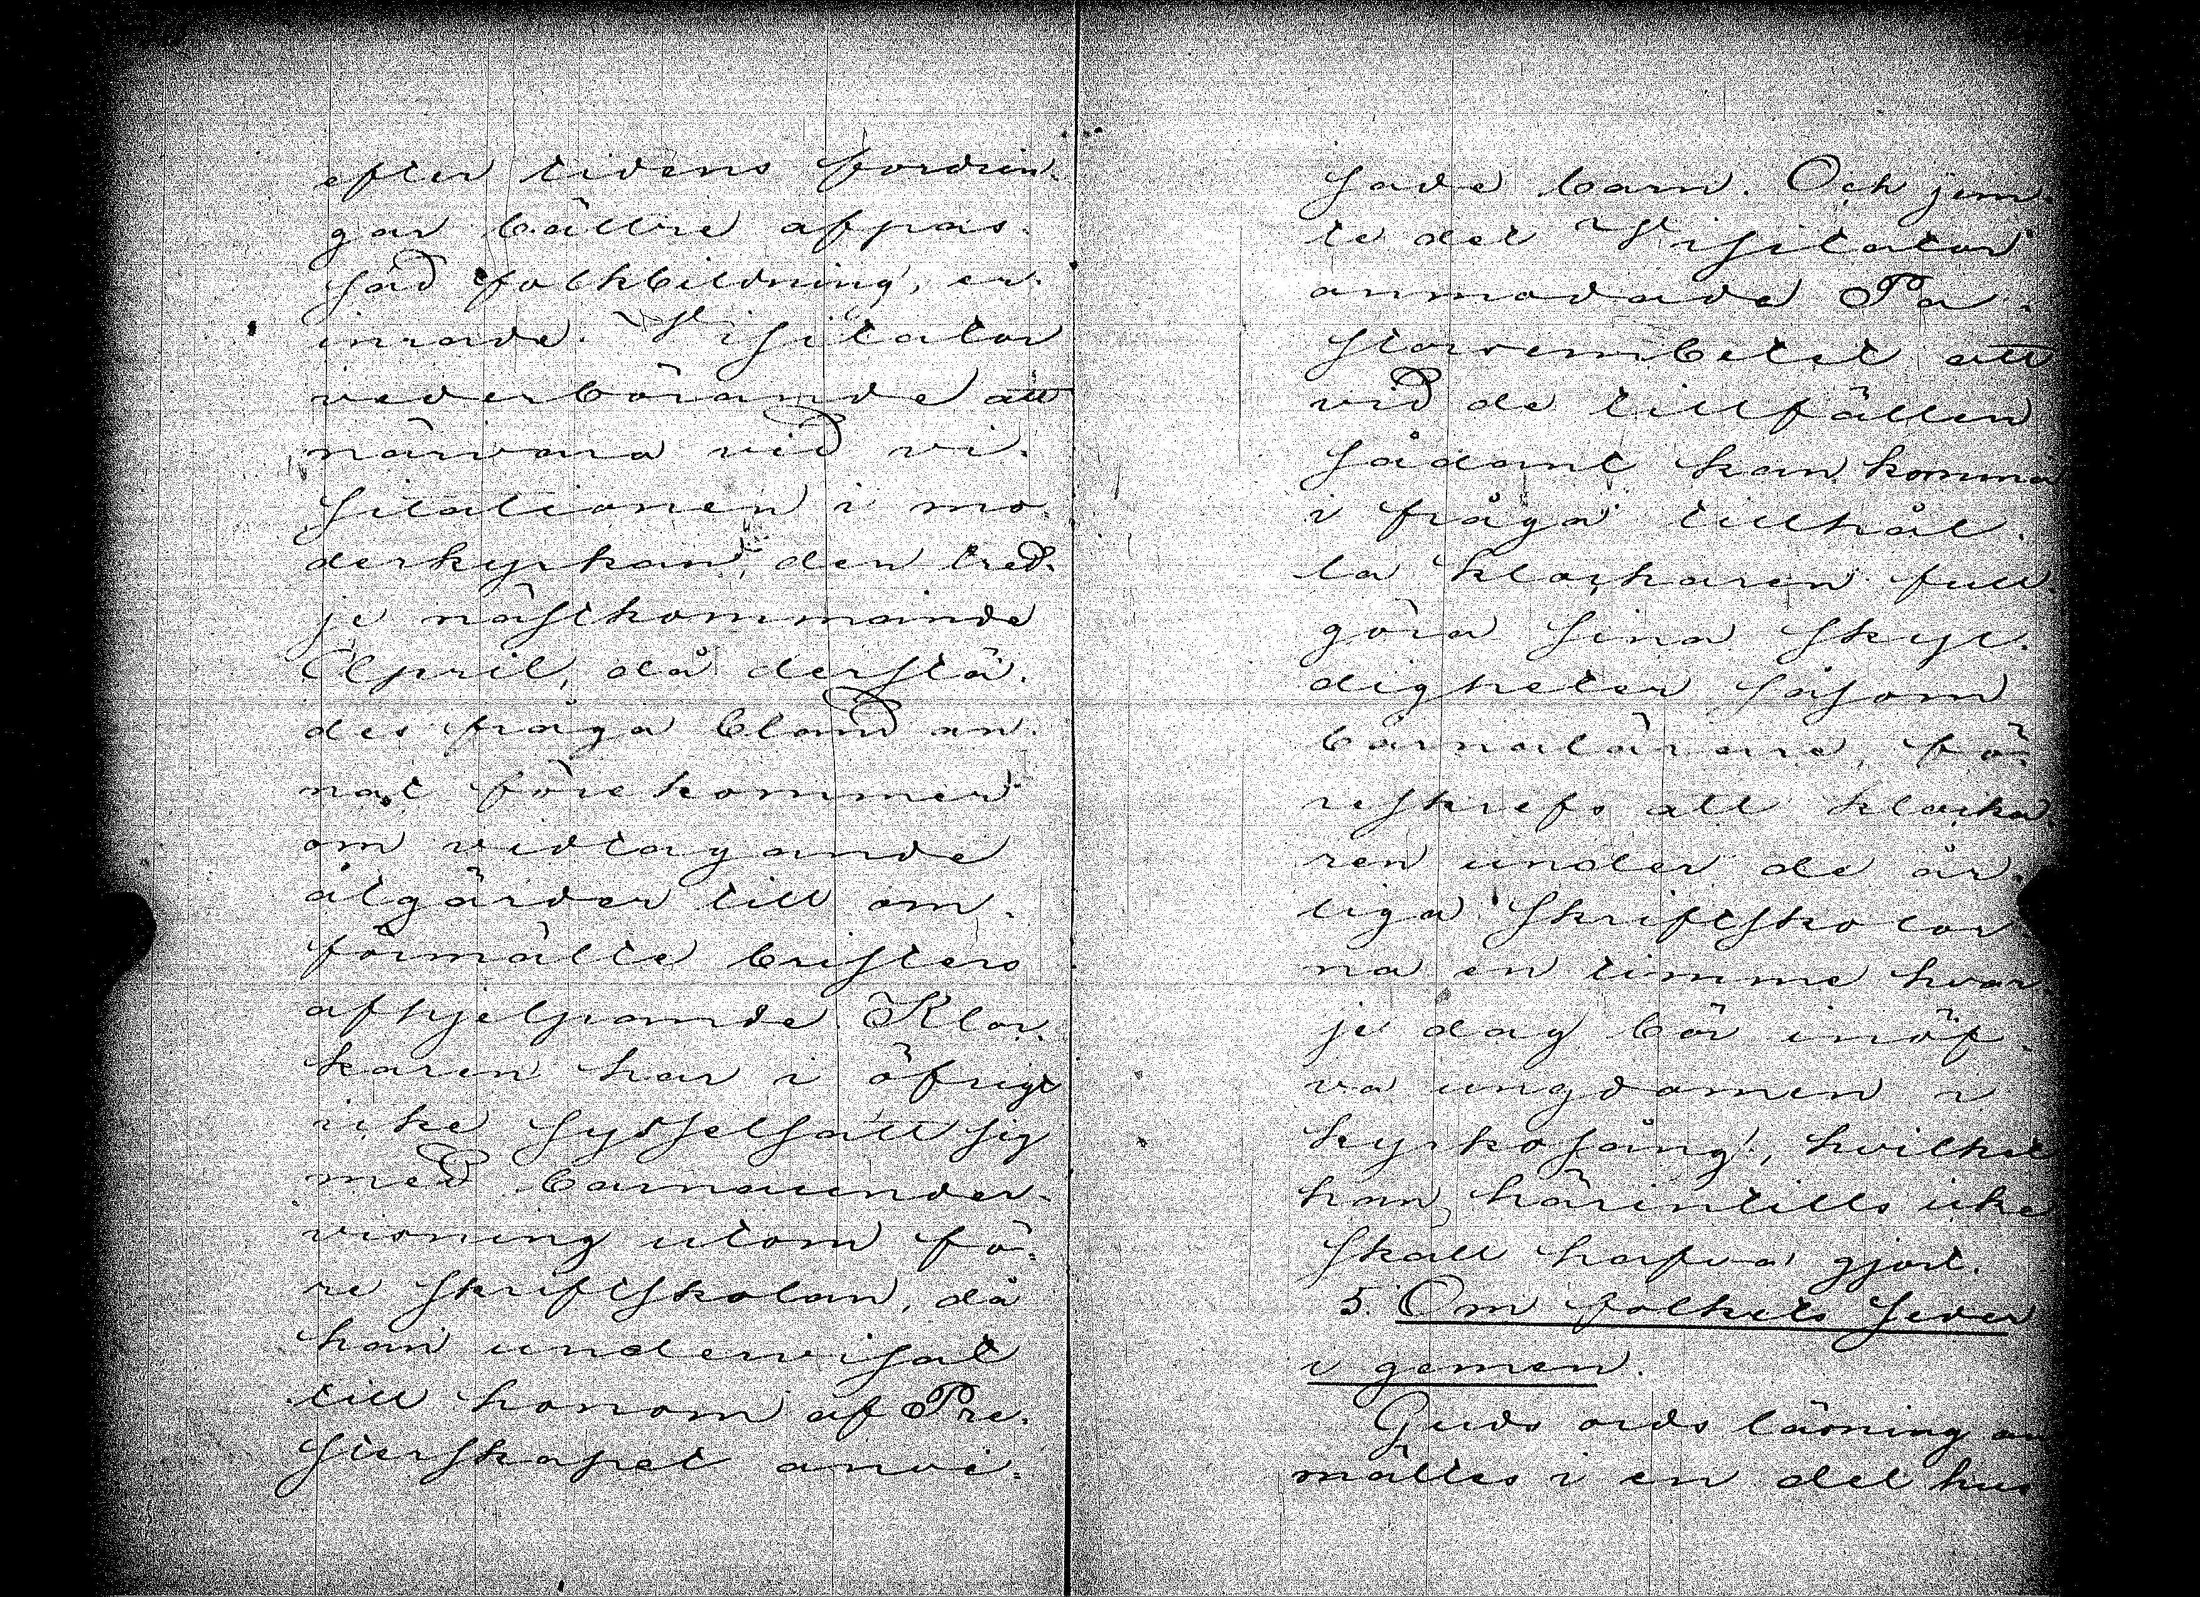 efter tidens fordrin-
gar bättre afpas-
sad folkbildning, er-
inrade Visitator
vederbörande att
närvara vid vi-
sitationen i mo-
derkyrkan den tred-
je nästkommande
April, då derstä-
des fråga bland an-
nat förekommer
om vidtagande
åtgärder till om-
förmälte bristers
afhjelpande. Kloc-
karen har i öfrigt
icke sysselsatt sig
med barnaunder-
visning utom fö-
re skriftskolan, då
han undervisat
till honom af Pre-
sterskapet anvi-
sade barn. Och jem-
te det Visitator
anmodade Pa-
storsembetet att
vid de tillfällen
sådant kan komma
i fråga tillhål-
la klockaren full-
göra sina skyl-
digheter såsom
barnalärare, fö-
reskrefs att klocka
ren under de år-
liga skriftskolor-
na en timme hvar-
je dag bör inöf-
va ungdomen i
kyrkosång, hvilket
han härintills icke
skall hafva gjort.
5. Om folkets seder
i gemen.
Guds ords läsning an
mältes i en del hus